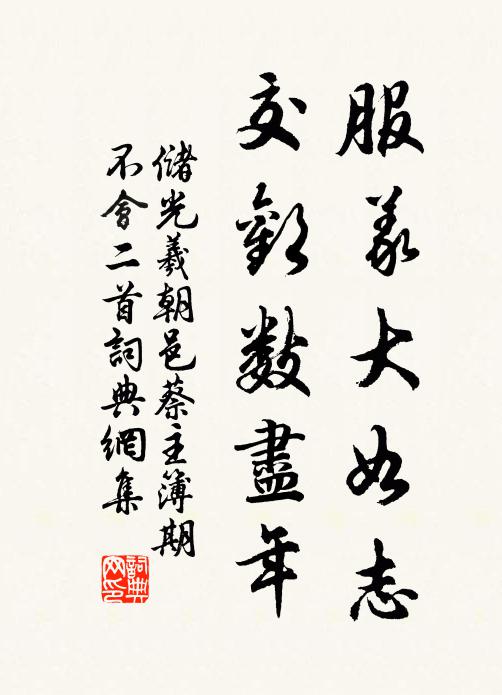 服義大如志
交歡數盡年
儲光羲朝邑蔡主簿期
不會二首詞典網集
詞典
网印